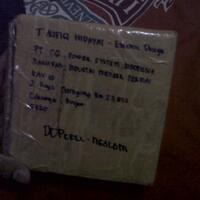 TAUFIQ HIDAYAT - Electric Design
PT CG POWER SYSTEM INDONESIA
KAWASAN INDUSTRI MENARA PERMAI
KAV 10
Jl Raya Narogong Km 23,852
Cileungsi Bogor
DOPCELL - NGALAM